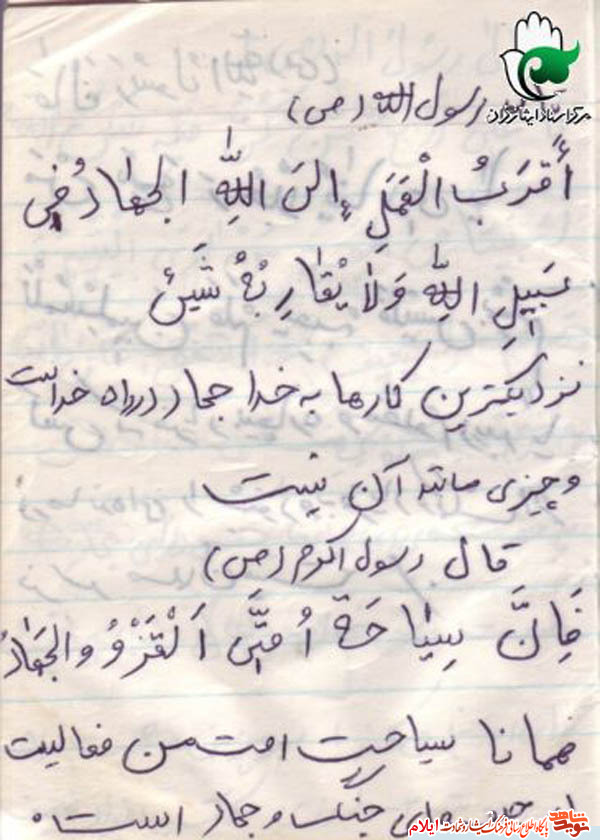 مرکز اسناد ایثارگران
رسول الله (ص)
أَقرَبُ الْعَمَلِ إِلیَ اللّٰهِ الجِهٰادُ فیِ
سَبیٖلِ اللّٰهِ وَلاٰ یُقٰارِبُهُ شَیئ
نزدیکترین کارها به خدا جهاد در راه خداست
و چیزی مانند آن نیست
قال رسول اکرم (ص)
فَاِنَّ سِیٰاحَة اُمَّتیٖ اَلْغَزْوُ والجِهٰادُ
همانا سیاحت امت من فعالیت
جنگ و جهاد است
نوید شاهد پایگاه اطلاع رسانی فرهنگ ایثار و شهادت ایلام